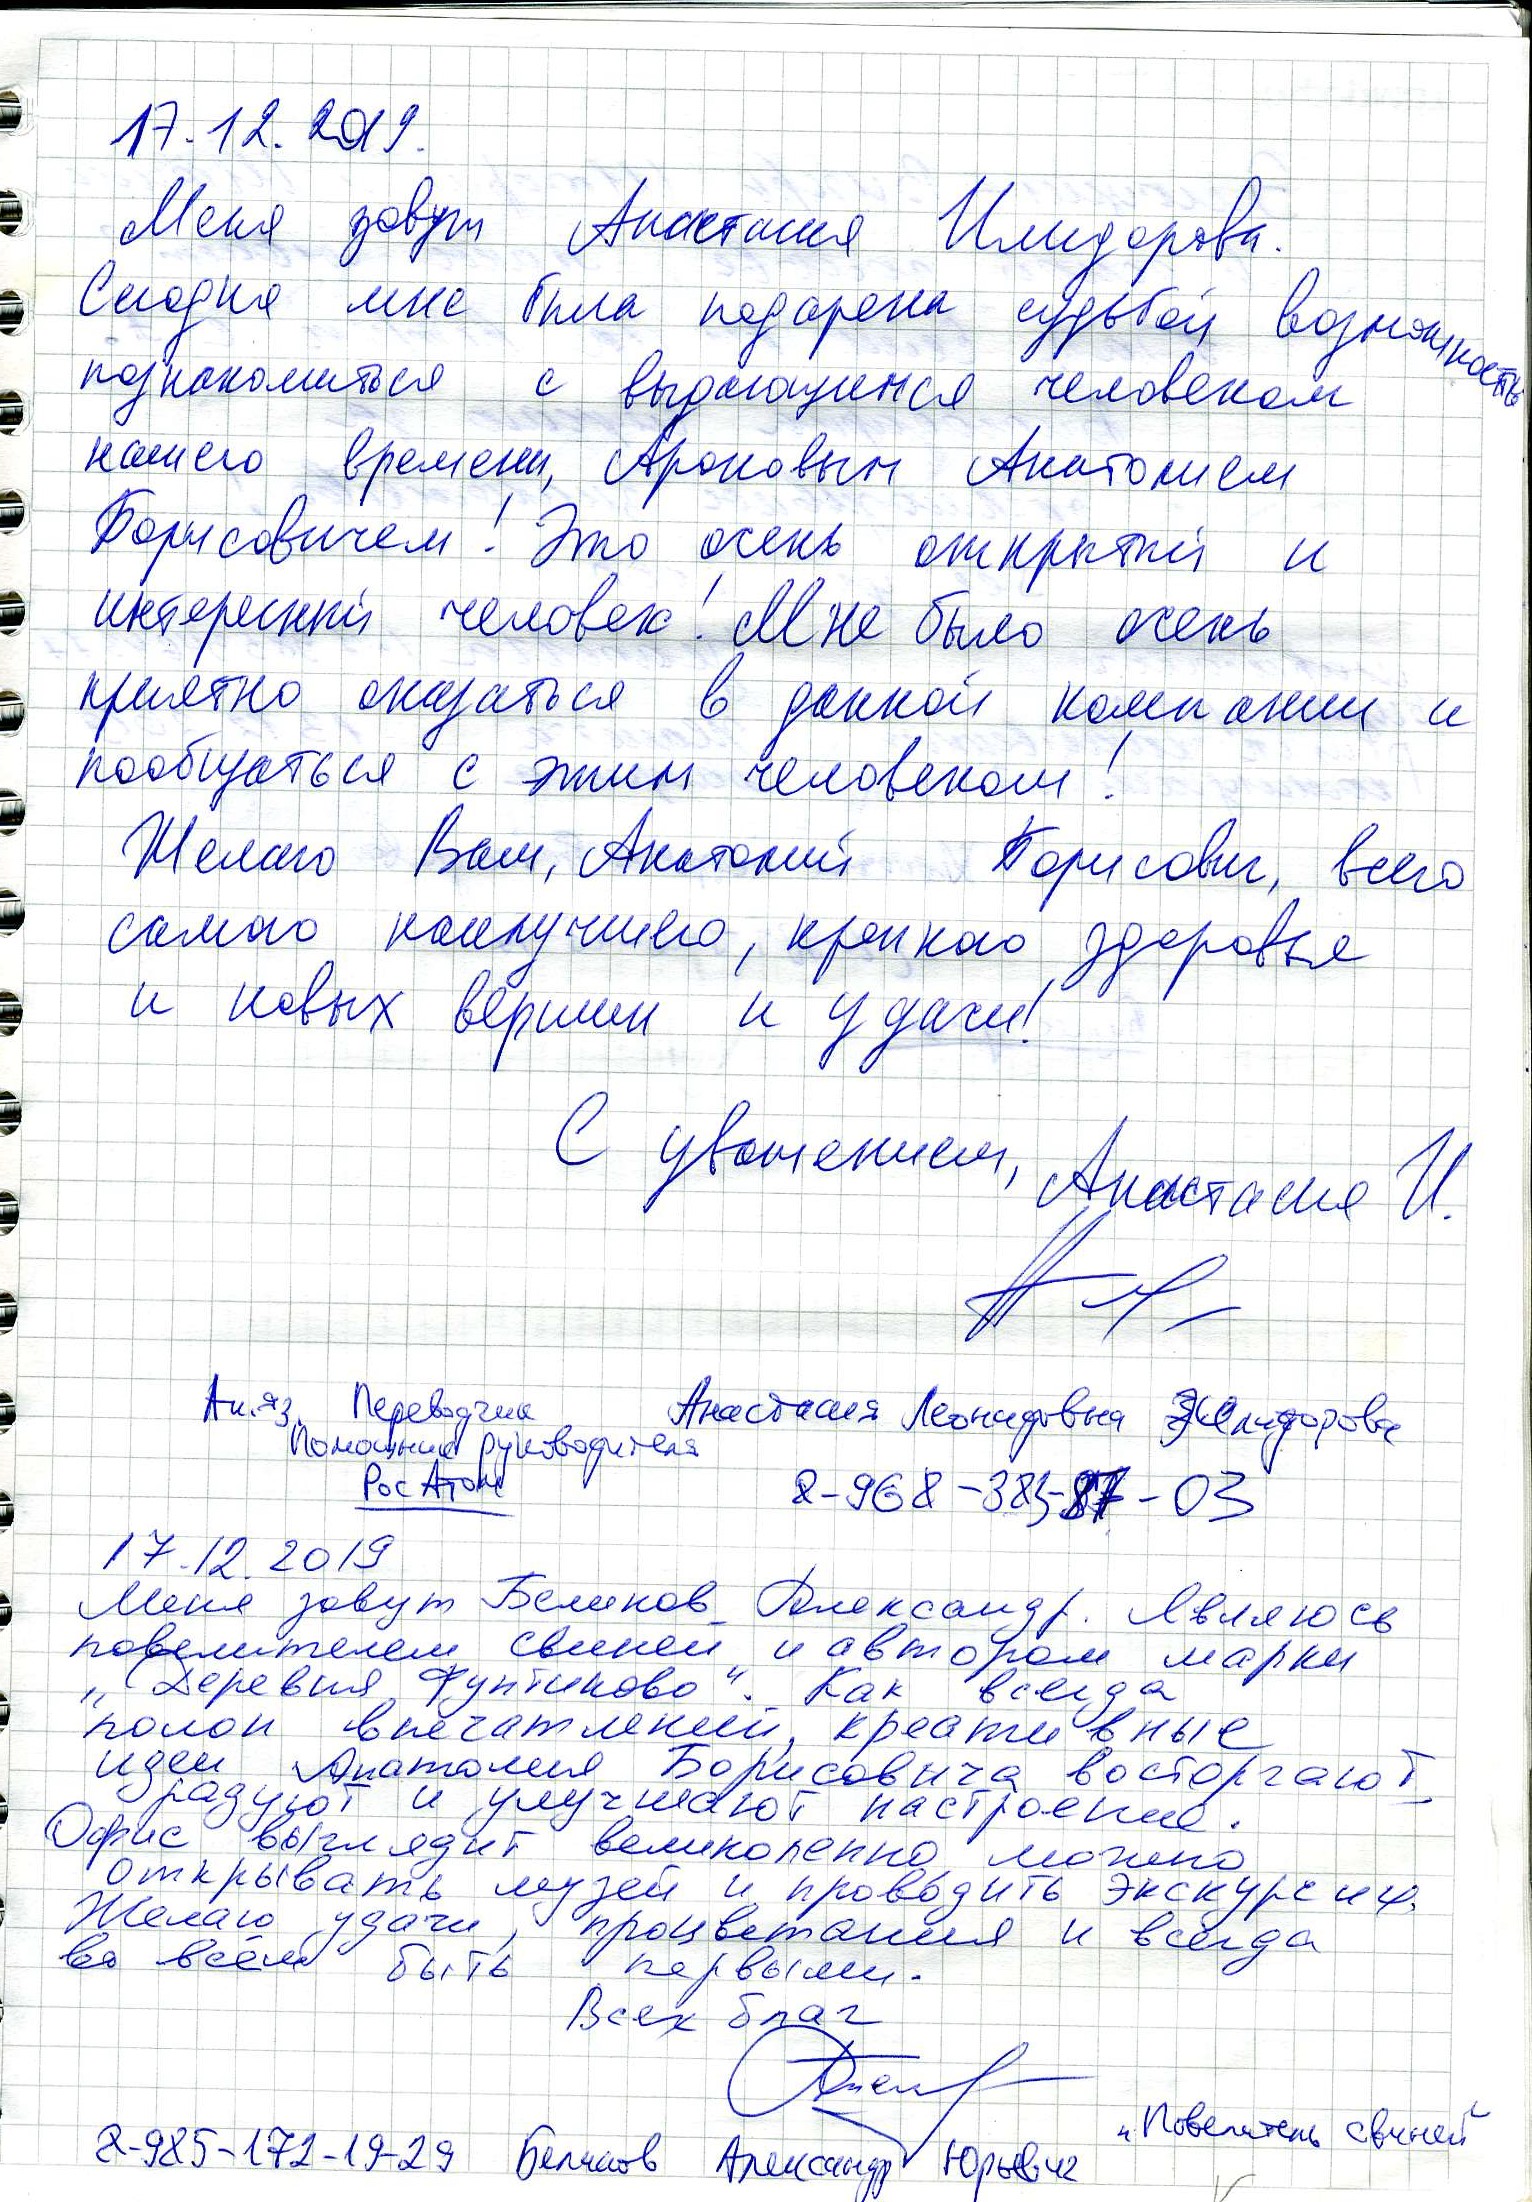 17.12.2019.
Меня зовут Анастасия
Сегодня мне была подарена судьбой возможность
познакомиться с выдающимся человеком
нашего времени, Ароновым Анатолием
Борисовичем! Это очень открытый и
интересный человек! Мне было очень
приятно оказаться в данной компании и
пообщаться с этим человеком!
Желаю Вам, Анатолий Борисович, всего
самого наилучшего, крепкого здоровья
и новых вершин и удачи!
С уважением, Анастасия И.
Ан.яз. Переводчик Анастасия Леонидовна
Помощник руководителя
РосАтом 8-968-383-87-03
17.12.2019
Меня зовут Беликов Александр. Являюсь
повелителем свиней и автором марки
„Деревня Фунтиково“. Как всегда
полон впечатлений, креативные
идеи Анатолия Борисовича восторгают,
радуют и улучшают настроение.
Офис выглядит великолепно, можно
открывать музей и проводить экскурсии.
Желаю удачи, процветания и всегда
во всём быть первыми.
Всех благ
8-985-172-19-29 Беликов Александр Юрьевич „Повелитель свиней“